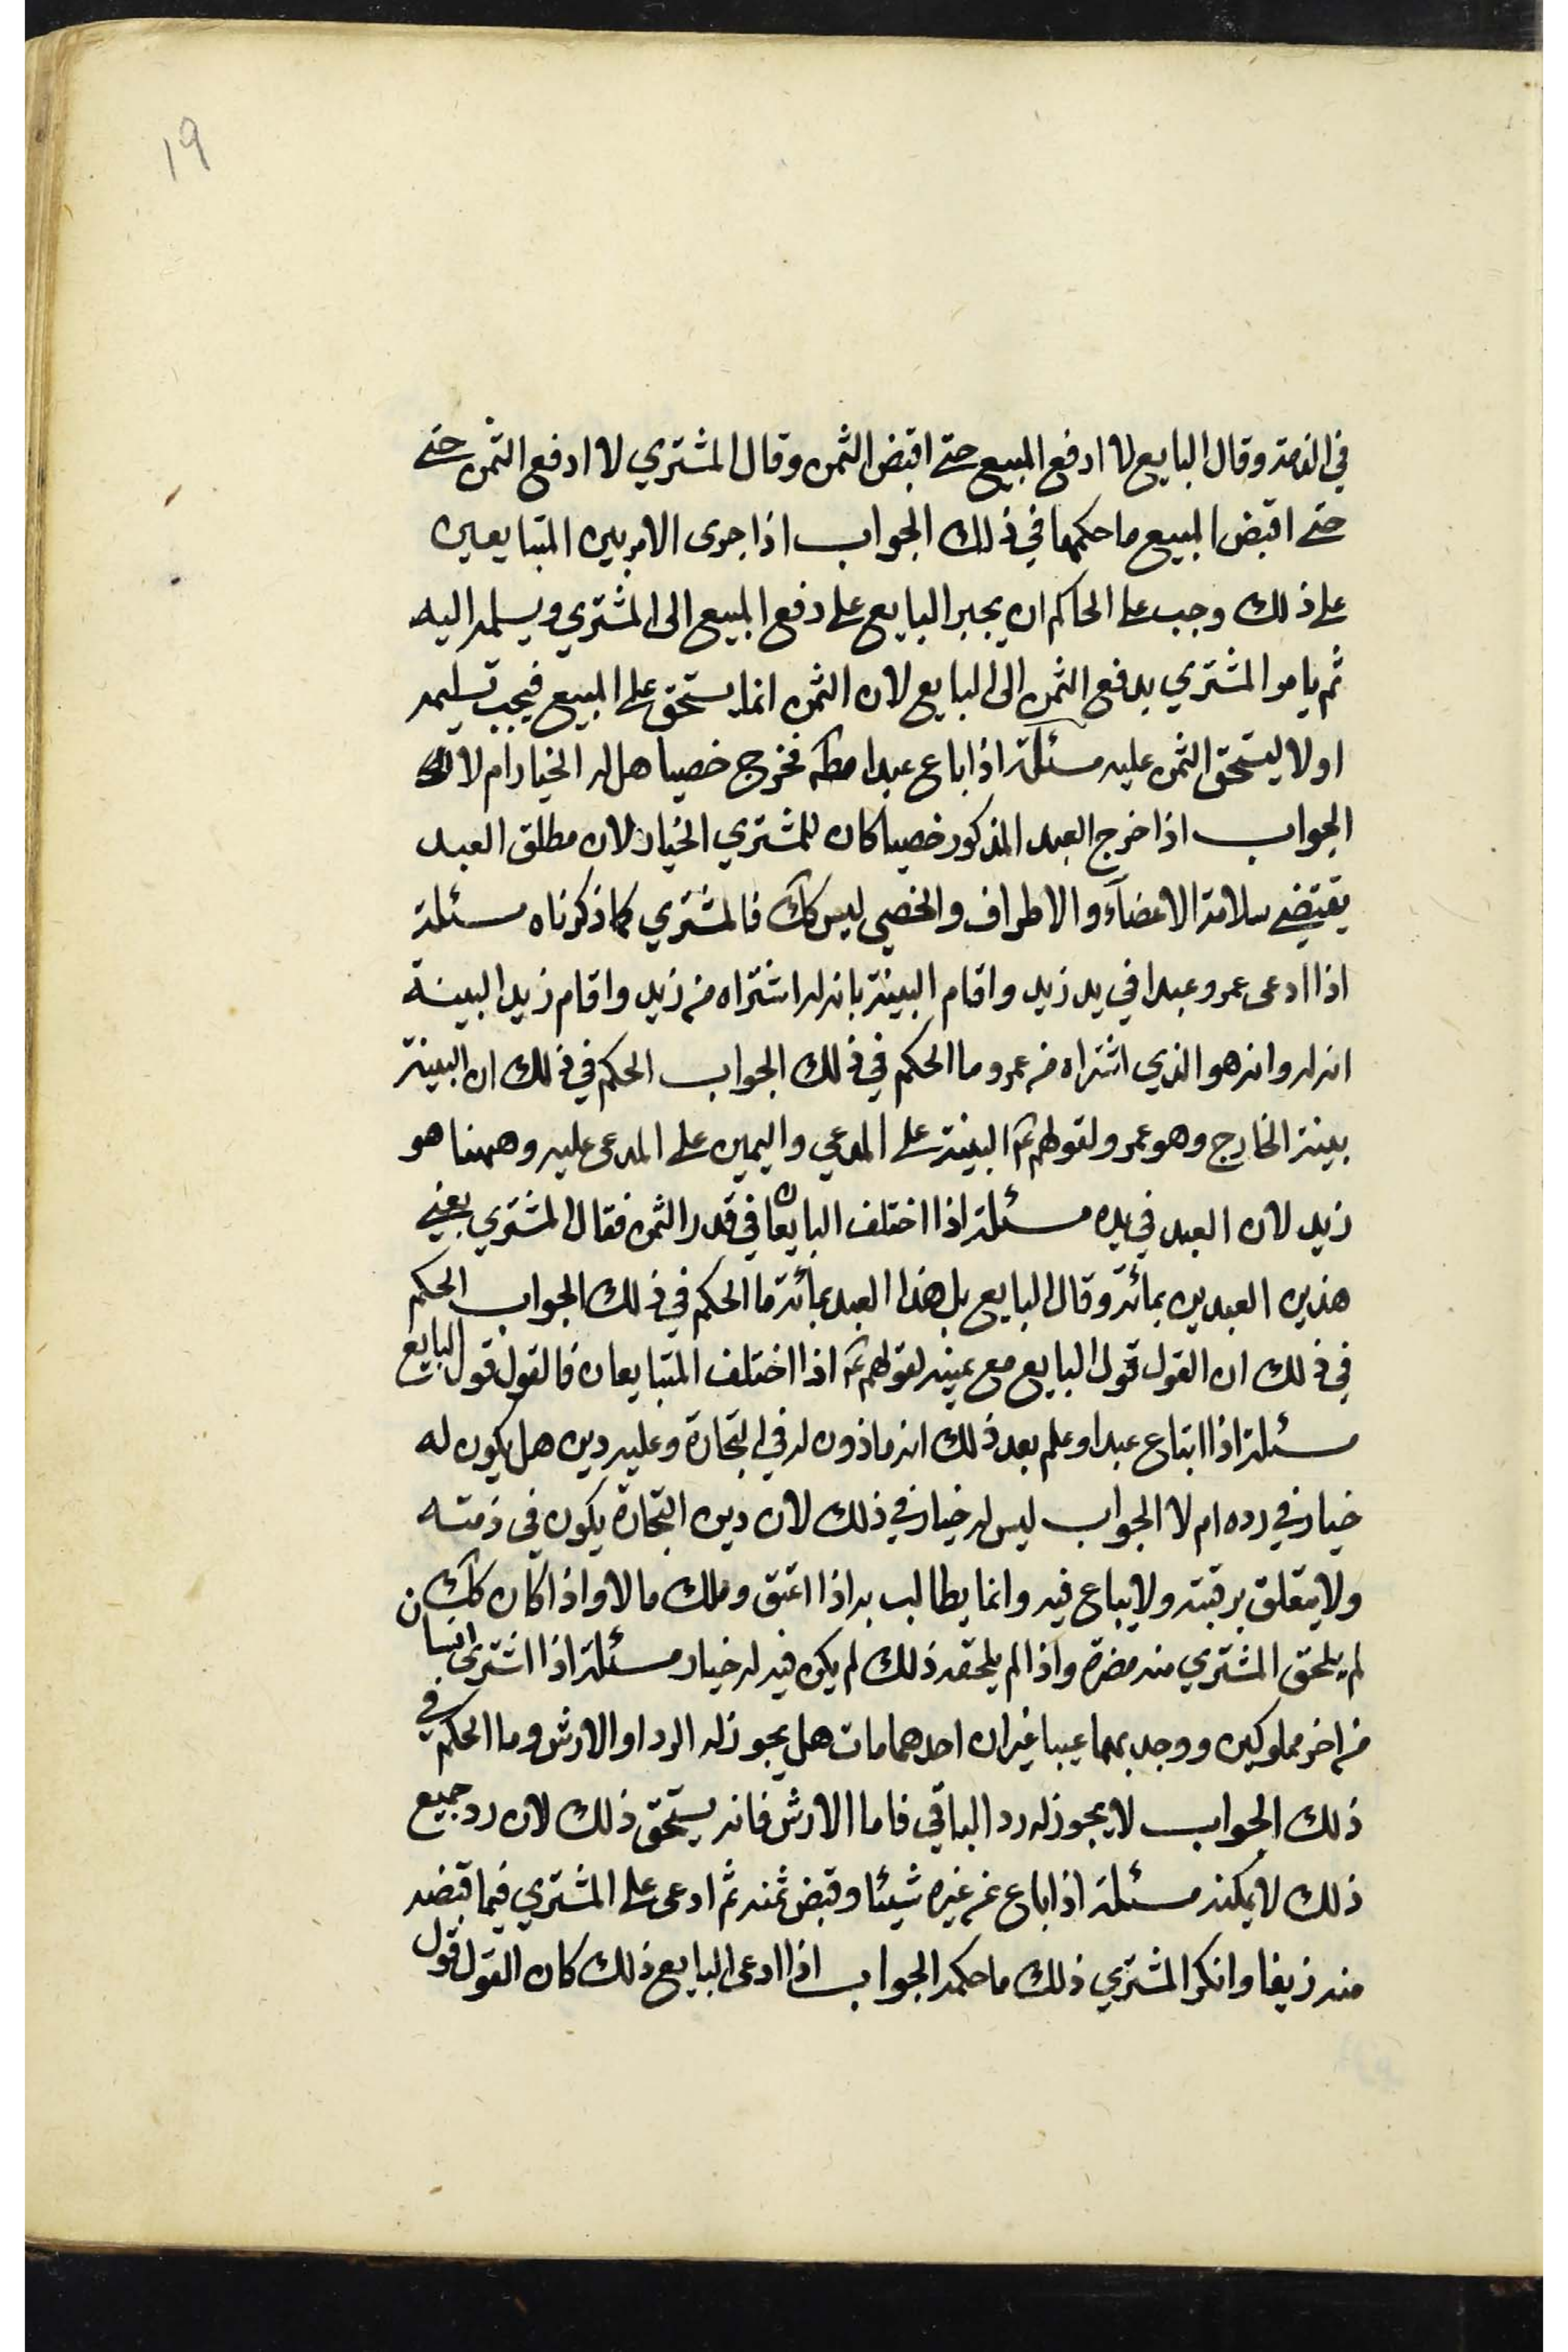 19
في الذمة وقال البايع لا ادفع المبيع حتى اقبض الثمن وقال المشتري لا ادفع الثمن حتى
حتى اقبض المبيع ما حكمها في ذلك الجواب اذا جرى الامر بين المتبايعين
على ذلك وجب على الحاكم ان يجبر البايع على دفع المبيع الى المشتري ويسلمه اليه
ثم يامر المشتري بدفع الثمن الى البايع لان الثمن انما يستحق على المبيع فيجب تسليمه
اولا ليستحق الثمن عليه مسئلة اذا باع عبدا مطلقا فخرج خصيا هل له الخيار ام لا
الجواب اذا خرج العبد المذكور خصيا كان للمشتري الخيار لان مطلق العبد
يقتضي سلامة الاعضآء والاطراف والخصي ليس كك فالمشتري كما ذكرناه مسئلة
اذا ادعى عمرو عبدا في يد زيد واقام البينة بانه له اشتراه من زيد واقام زيد البينة
انه له وانه هو الذي اشتراه من عمرو ما الحكم في ذلك الجواب الحكم في ذلك ان البينة
بينة الخارج وهو عمرو لقولهم ع البينة على المدعي واليمين على المدعى عليه وههنا هو
زيد لان العبد في يده مسئلة اذا اختلف البايعان في قدر الثمن فقال المشتري بعني
هذين العبدين بمائة وقال البايع بل هذا العبد بمائة ما الحكم في ذلك الجواب الحكم
في ذلك ان القول قول البايع مع يمينه لقولهم ع اذا اختلف المتبايعان فالقول قول البايع
مسئلة اذا ابتاع عبدا وعلم بعد ذلك انه ماذون له في التجارة وعليه دين هل يكون له
خيار في رده ام لا الجواب ليس له خيار في ذلك لان دين التجارة يكون في ذمته
ولا يتعلق برقبته ولا يباع فيه وانما يطالب به اذا اعتق وملك مالا واذا كان كك
لم يلحق المشتري منه مضرة واذا لم يلحقه ذلك لم يكن فيه له خيار مسئلة اذا اشترى انسان
من اخر مملوكين ووجد بهما عيبا غير ان احدهما مات هل يجوز له الرد او الارش وما الحكم في
ذلك الجواب لا يجوز له رد الباقي فاما الارش فانه يستحق ذلك لان رد جميع
ذلك لا يمكنه مسئلة اذا باع من غيره شيئا وقبض ثمنه ثم ادعى على المشتري فيما قبضه
منه زيفا وانكر المشتري ذلك ما حكمه الجواب اذا ادعى البايع ذلك كان القول قول